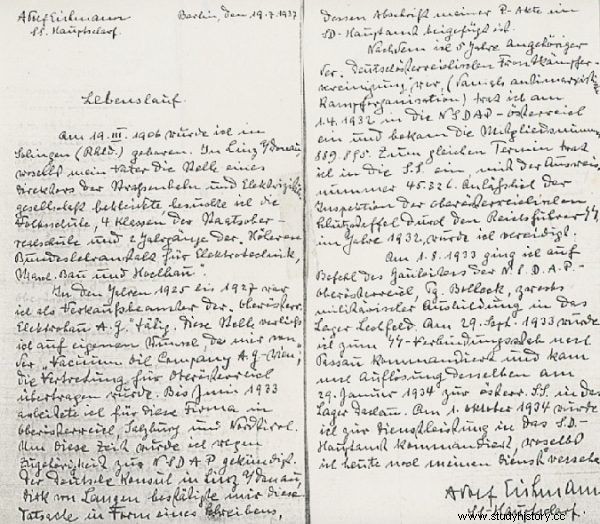 Adolf Eichmann
SS. Hauptscharf.
Berlin, den 19.7.1937
Lebenslauf.
Am 19. III. 1906 wurde ich in
Solingen (Rhld.) geboren. In Linz a/Donau,
woselbst mein Vater die Stelle eines
Direktors der Strassenbahn und Elektrizitäts
gesellschaft bekleidete besuchte ich die
Volksschule, 4 Klassen der Staatsober-
realschule und 2 Jahrgänge der "Höheren
Bundeslehranstalt für Elektrotechnik,
Masch. Bau und Hochbau".
In den Jahren 1925 bis 1927 war
ich als Verkaufsbeamter der "Oberösterr.
Elektrobau A.G." tätig. Diese Stelle verließ
ich auf eigenen Wunsch da mir von
der "Vacuum Oil Company A.G. Wien",
die Vertretung für Oberösterreich
übertragen wurde. Bis Juni 1933
arbeitete ich für diese Firma in
Oberösterreich, Salzburg und Nordtirol.
Um diese Zeit wurde ich wegen
Zugehörigkeit zur NSDAP gekündigt.
Der deutsche Konsul in Linz a/Donau,
Dirk von Langen bestätigte mir diese
Tatsache in Form eines Schreibens,
dessen Abschrift meiner P-Akte im
SD-Hauptamt beigefügt ist.
Nachdem ich 5 Jahre Angehöriger
der "Deutschösterreichischen Frontkämpfer-
vereinigung" war, (damals antimarxistische
Kampforganisation) trat ich am
1.4.1932 in die NSDAP-Österreich
ein und bekam die Mitgliedsnummer
889.895. Zum gleichen Termin trat
ich in die SS. ein, mit der Ausweis
nummer 45.326. Anläßlich der
Inspektion der oberösterreichischen
Schutzstaffel durch den Reichsführer SS
im Jahre 1932, wurde ich vereidigt.
Am 1.8.1933 ging ich auf
Befehl des Gauleiters der N.S.D.A.P.-
Oberösterreich, Pg. Bolleck, zwecks
militärischer Ausbildung in das
Lager Lechfeld. Am 29. Sept. 1933 wurde
ich zum SS-Verbindungsstab nach
Passau kommandiert und kam
nach Auflösung desselben am
29. Januar 1934 zur österr. SS. in das
Lager Dachau. Am 1. Oktober 1934 wurde
ich zur Dienstleistung in das S.D.-
Hauptamt kommandiert, woselbst
ich heute noch meinen Dienst versehe.
Adolf Eichmann
SS-Hauptscharf.
studyhistory.cc